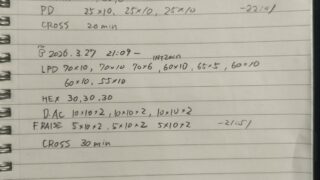 PD 25×10, 25×10, 25×10
CROSS 20min
2026.3.27 21:09~
LPD 70×10, 70×10 70×6, 60×10, 65×5, 60×10
60×10, 55×10
HEX 30, 30, 30
D.AC 10×10×2, 10×10×2, 10×10×2
F.RAISE 5×10×2, 5×10×2 5×10×2 -21:51
CROSS 30min